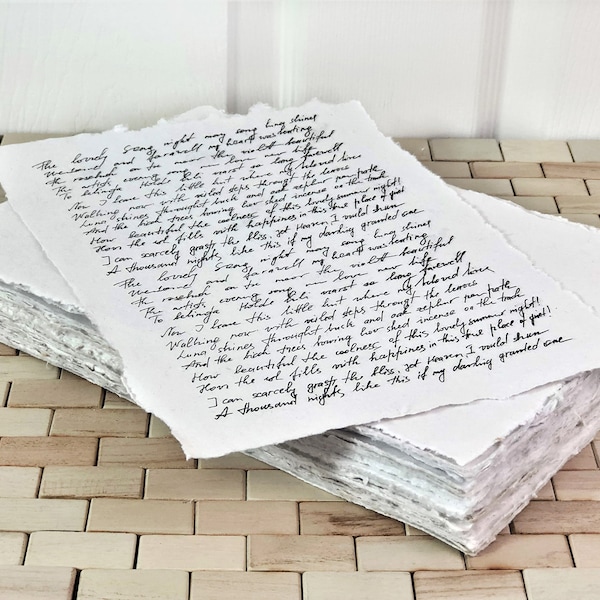 The lovely Song night may song Luna shines
Welcome and farewell my heart was beating
the rosebush on the moor the violet beautiful
The artists evening song new love new life
To Belinda most so long farewell
Now I leave this little hut where my beloved live
Walking now with veiled steps through the leaves
Luna shines throught buch and oak zephyr
And the birch trees bowing low shed incense on the track
How beautiful the coolness of this lovely summer night!
How the sol fills with happiness in this true place of quiet!
I can scarcely grasp the bliss, yet Heaven, I would shun
A thousand nights like this if my darling granted one
The lovely Song night may song Luna shines
Welcome and farewell my heart was beating
the rosebush on the moor the violet beautiful
The artists evening song new love new life
To Belinda most so long farewell
Now I leave this little hut where my beloved live
Walking now with veiled steps through the leaves
Luna shines throught buch and oak zephyr
And the birch trees bowing low shed incense on the track
How beautiful the coolness of this lovely summer night!
How the sol fills with happiness in this true place of quiet!
I can scarcely grasp the bliss, yet Heaven, I would shun
A thousand nights like this if my darling granted one